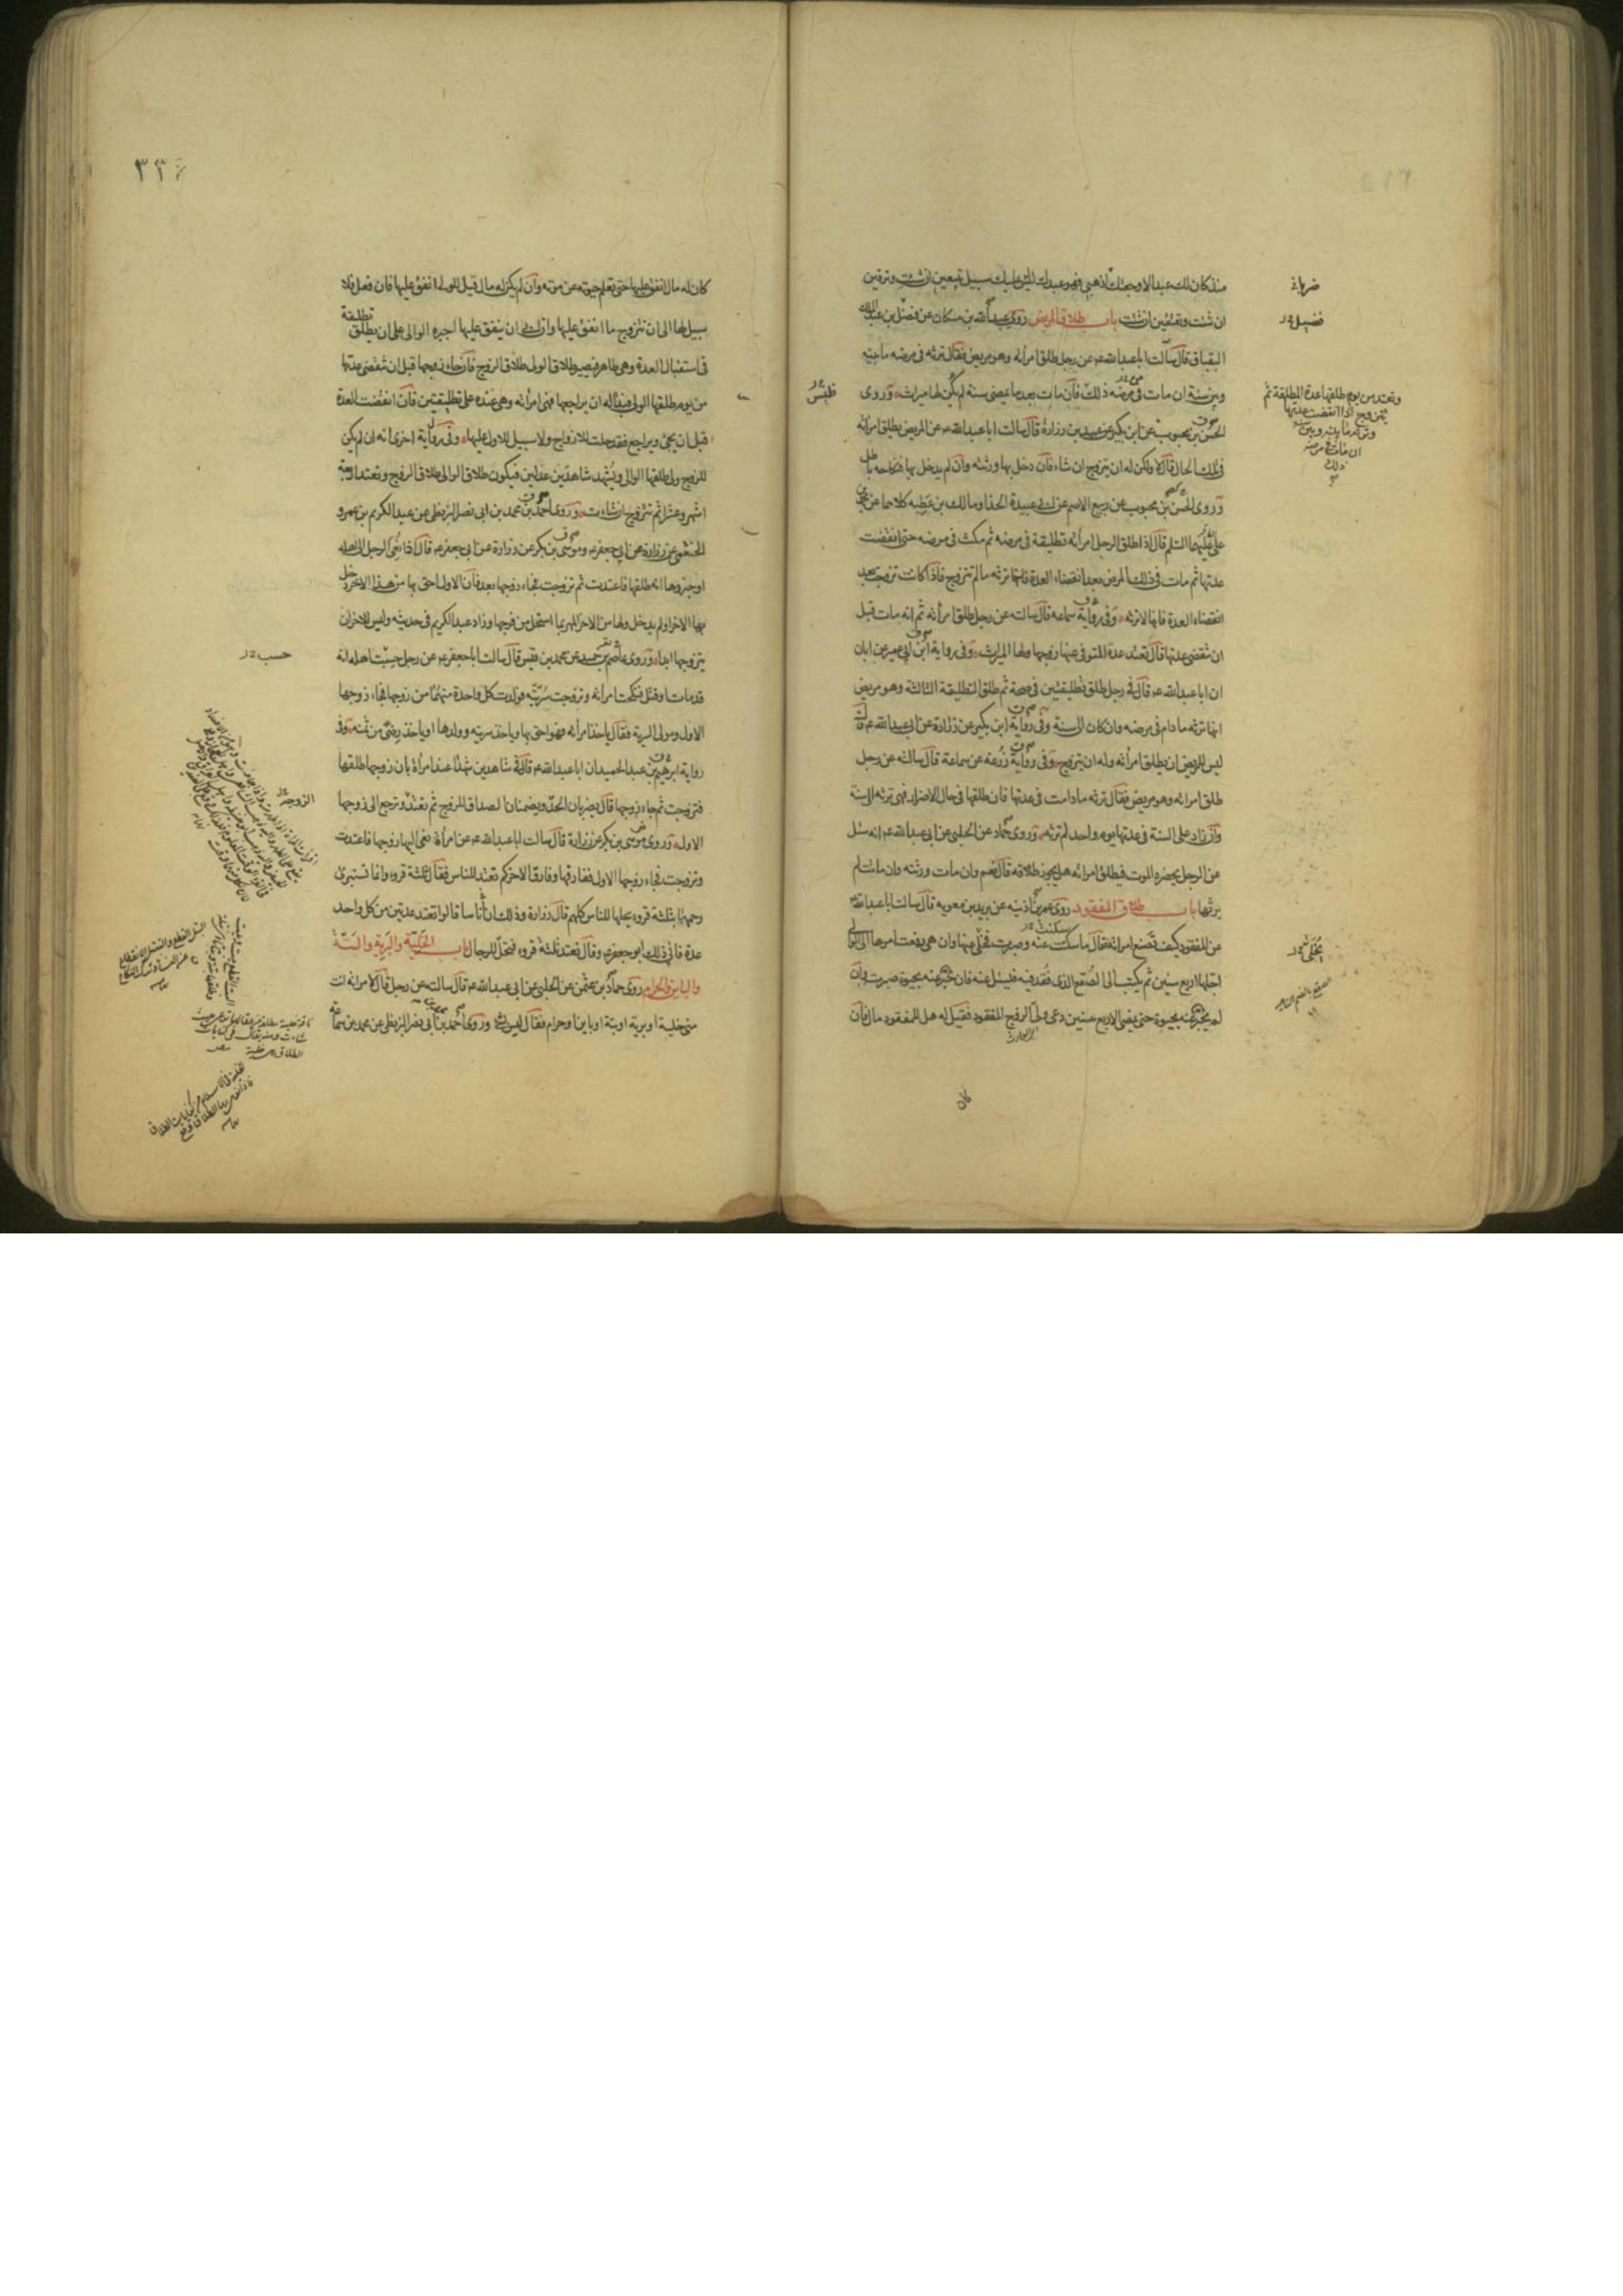 منذ كان لك عبدا لاوجعتك اذهبي فهو عبدك ليس عليك سبيل تبيعين ان شئت وترقين
ان شئت وتعتقين ان شئت باب طلاق المريض روى عبد الله بن مسكان عن فضل بن عبد الملك
البقباق قال سألت ابا عبد الله عن رجل طلق امرأته وهو مريض فقال ترثه في مرضه ما بينه
وبين سنة ان مات في مرضه ذلك فان مات بعد ما يمضى سنة لم يكن لها ميراث وروى
الحسن بن محبوب عن ابن بكير عن عبيد بن زرارة قال سالت ابا عبد الله عن المريض يطلق امرأته
في تلك الحال قال لا ولكن له ان يتزوج ان شاء فان دخل بها ورثته وان لم يدخل بها فنكاحه باطل
وروى الحسن بن محبوب عن ربيع الاصم عن ابي عبيدة الحذا ومالك بن عطيه كلاهما عن محمد بن
علي عليهما السلم قال اذا طلق الرجل امرأته تطليقة في مرضه ثم مكث في مرضه حتى انقضت
عدتها ثم مات في ذلك المرض بعد انقضاء العدة فانها ترثه ما لم تتزوج فاذا كانت تزوجت بعد
انقضاء العدة فانها لا ترثه وفي رواية سماعه قال سالته عن رجل طلق امرأته ثم انه مات قبل
ان تنقضي عدتها قال تعتد عدة المتوفى عنها زوجها ولها الميراث وفي رواية ابن ابي عمير عن ابان
ان ابا عبد الله قال في رجل طلق تطليقتين في صحة ثم طلق التطليقة الثالثة وهو مريض
انها ترثه ما دام في مرضه وان كان الى سنة وفي رواية ابن بكير عن زرارة عن ابي عبد الله قال
ليس للمريض ان يطلق امرأته وله ان يتزوج وفي رواية زرعة عن سماعة قال سالته عن رجل
طلق امرأته وهو مريض فقال ترثه ما دامت في عدتها فان طلقها في حال الاضرار فهي ترثه الى سنة
وان زاد على السنة في عدتها يوم واحد لم ترثه وروى حماد عن الحلبي عن ابي عبد الله انه سئل
عن الرجل يحضره الموت فيطلق امرأته هل يجوز طلاقه قال نعم وان مات ورثته وان ماتت لم
يرثها باب طلاق المفقود روى عمر بن اذينه عن بريد بن معويه قال سالت ابا عبد الله
عن المفقود كيف تصنع امرأته فقال ما سكتت عنه وصبرت فخلى عنها وان هي رفعت امرها الى الوالي
اجلها اربع سنين ثم يكتب الى الصقع الذي فقد فيه فليسئل عنه فان خبر عنه بحيوة صبرت وان
لم يخبر عنه بحيوة حتى يمضى الاربع سنين دعى ولى الزوج المفقود فقيل له هل للمفقود مال فان
كان
ضربا
فضيل
وتعتد من يوم طلقها عدة المطلقة ثم
تتزوج اذا انقضت عدتها
وترثه ما بينه وبين سنة
ان مات في مرضه
ذلك
فليس
الصقع بالضم الناحيه
٣٣٤
كان له مال انفق عليها حتى تعلم حيوته من موته وان لم يكن له مال قيل للولى انفق عليها فان فعل فلا
سبيل لها الى ان تتزوج ما انفق عليها وان ابى ان ينفق عليها اجبره الوالى على ان يطلق تطليقة
في استقبال العدة وهي طاهر فيصير طلاق الولى طلاق الزوج فان جاء زوجها قبل ان تنقضى عدتها
من يوم طلقها الولى فبدا له ان يراجعها فهي امرأته وهي عنده على تطليقتين فان انقضت العدة
قبل ان يجئ ويراجع فقد حلت للازواج ولا سبيل للاول عليها وفي رواية اخرى انه ان لم يكن
للزوج ولى طلقها الوالى ويشهد شاهدين عدلين فيكون طلاق الوالى طلاق الزوج وتعتد اربعة
اشهر وعشرا ثم تتزوج ان شاءت وروى احمد بن محمد بن ابي نصر البزنطي عن عبد الكريم بن عمرو
الخثعمي عن زرارة عن ابي جعفر وموسى بن بكر عن زرارة عن ابي جعفر قال اذا نعي الرجل الى اهله
او خبروها انه طلقها فاعتدت ثم تزوجت فجاء زوجها بعد فان الاول احق بها من هذا الاخر دخل
بها الاخر او لم يدخل ولها من الاخر المهر بما استحل من فرجها وزاد عبد الكريم في حديثه وليس للاخر ان
يتزوجها ابدا وروى عاصم بن حميد عن محمد بن قيس قال سالت ابا جعفر عن رجل حسبت اهله انه
قد مات او قتل فنكحت امرأته وتزوجت سريته فولدت كل واحدة منهما من زوجها فجاء زوجها
الاول ومولى السرية فقال ياخذ امرأته فهو احق بها وياخذ سريته وولدها او ياخذ رضى من ثمنه وفي
رواية ابرهيم بن عبد الحميد ان ابا عبد الله قال في شاهدين شهدا عند امرأة بان زوجها طلقها
فتزوجت ثم جاء زوجها قال يضربان الحد ويضمنان الصداق للزوج ثم تعتد وترجع الى زوجها
الاول وروى موسى بن بكر عن زرارة قال سالت ابا عبد الله عن امرأة نعى اليها زوجها فاعتدت
وتزوجت فجاء زوجها الاول ففارقها وفارقها الاخر كم تعتد للناس فقال ثلثة قروء وانما تستبرئ
رحمها بثلثة قروء تحلها للناس كلهم قال زرارة وذلك ان أناسا قالوا تعتد عدتين من كل واحد
عدة فابى ذلك ابو جعفر وقال تعتد ثلثة قروء فتحل للرجال باب الخلية والبرية والبتة
والبائن والحرام روى حماد بن عثمن عن الحلبي عن ابي عبد الله قال سالته عن رجل قال لامرأته انت
مني خلية او برية او بتة او باين او حرام فقال ليس بشئ وروى احمد بن ابي نصر البزنطي عن محمد بن سماعة
حسب
الزوجه